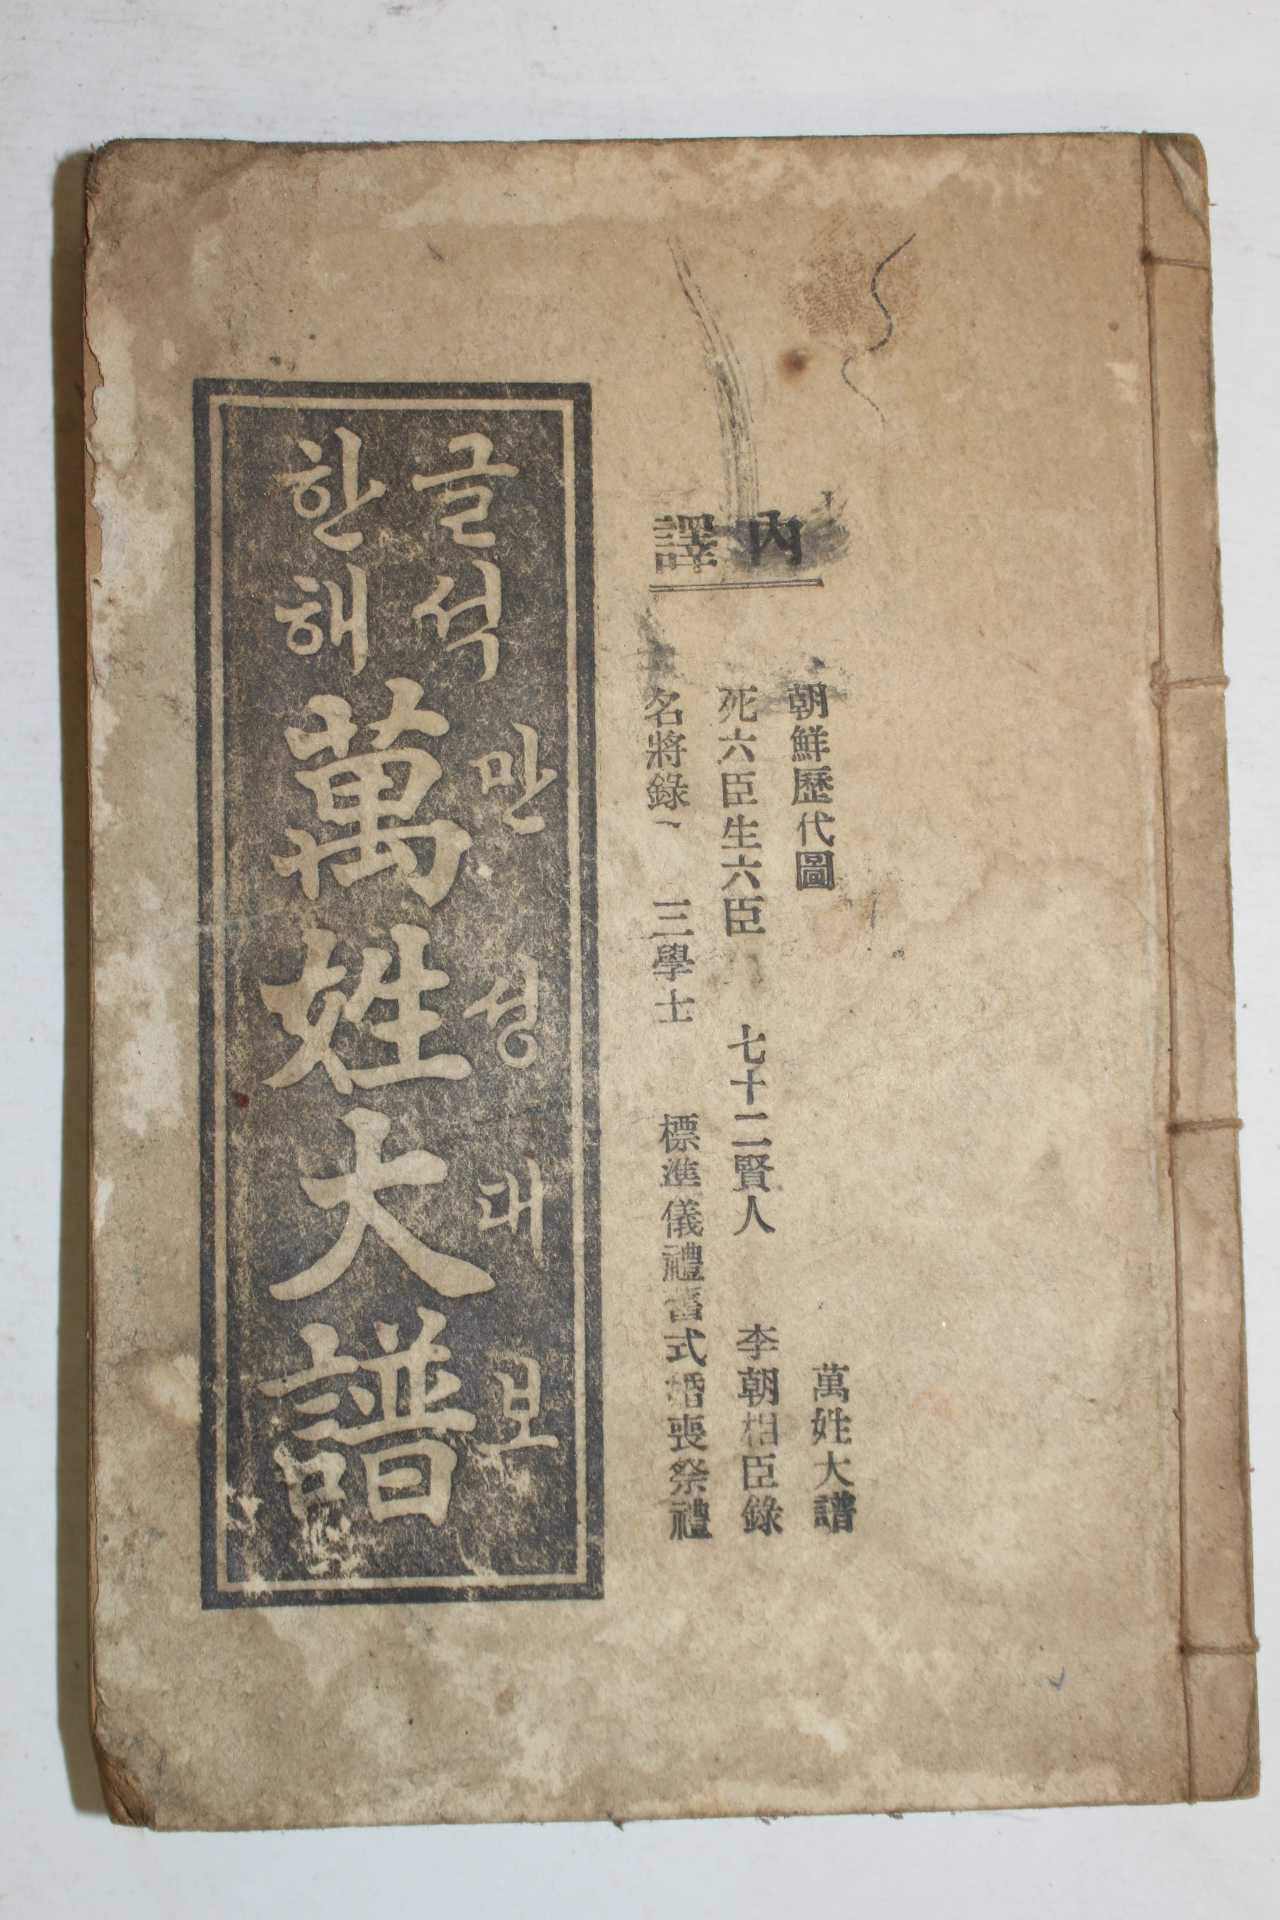 內譯
朝鮮歷代圖 萬姓大譜
死六臣生六臣 七十二賢人 李朝相臣錄
名將錄 三學士 標準儀禮 式婚喪祭禮
한글
해석
만성대보
萬姓大譜